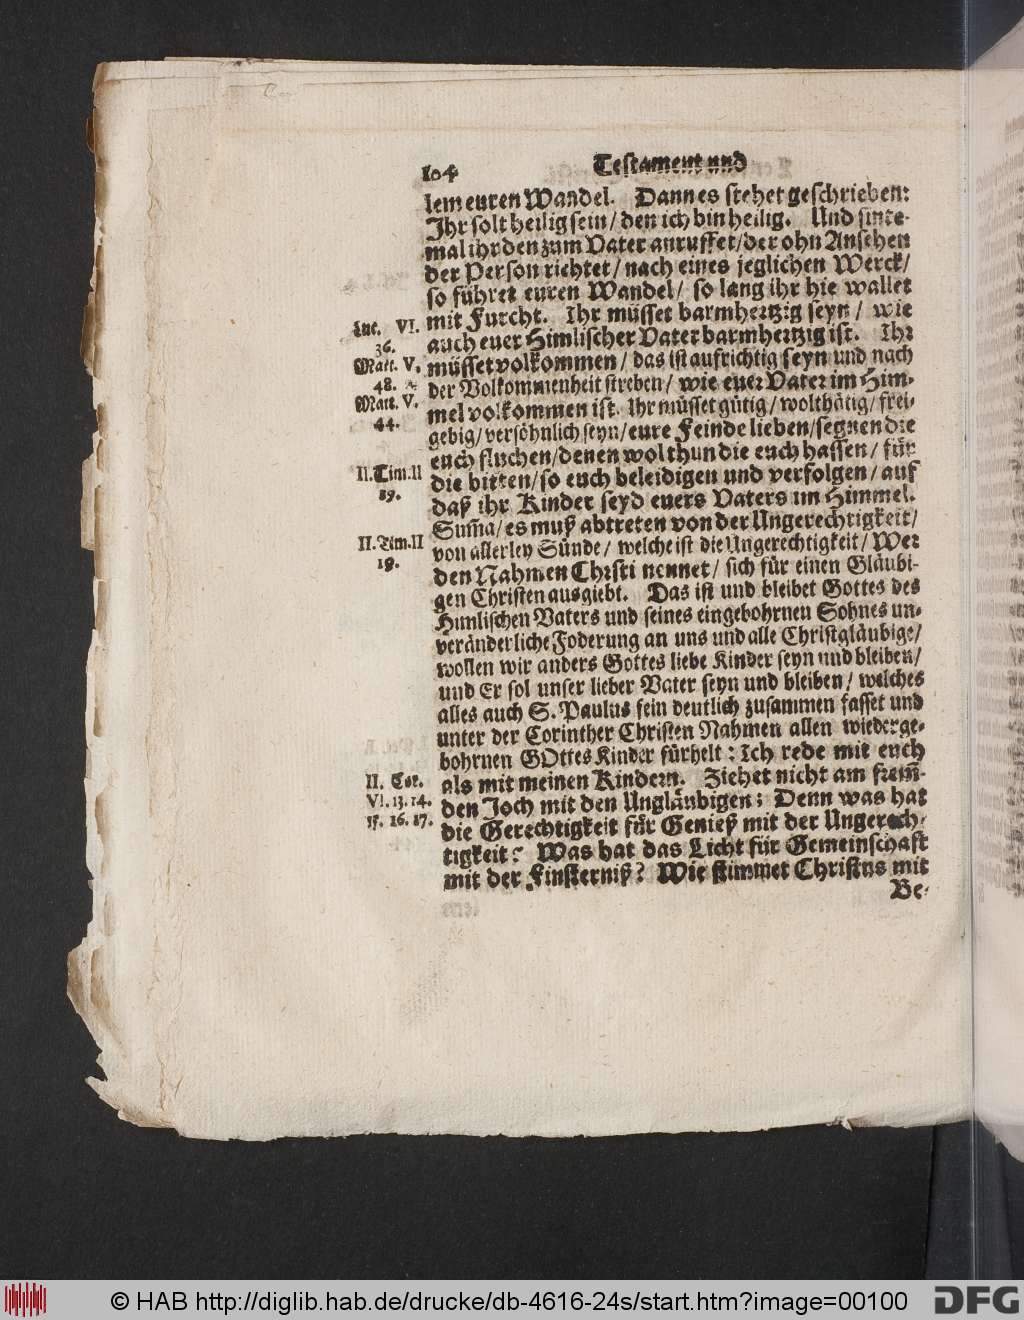 104 Testament und
lem euren Wandel. Dann es stehet geschrieben:
Ihr solt heilig sein/ den ich bin heilig. Und sinte-
mal ihr den zum Vater anruffet/ der ohn Ansehen
der Person richtet/ nach eines jeglichen Werck/
so führet euren Wandel/ so lang ihr hie wallet
mit Furcht. Ihr müsset barmhertzig seyn/ wie
auch euer Himlischer Vater barmhertzig ist. Ihr
müsset volkommen/ das ist aufrichtig seyn und nach
der Volkommenheit streben/ wie euer Vater im Him-
mel volkommen ist. Ihr müsset gütig/ wolthätig/ frei-
gebig/ versöhnlich seyn/ eure Feinde lieben/ segnen die
euch fluchen/ denen wol thun die euch hassen/ für
die bitten/ so euch beleidigen und verfolgen/ auf
daß ihr Kinder seyd euers Vaters im Himmel.
Sum̃a/ es muß abtreten von der Ungerechtigkeit/
von allerley Sünde/ welche ist die Ungerechtigkeit/ Wer
den Nahmen Christi nennet/ sich für einen Gläubi-
gen Christen ausgiebt. Das ist und bleibet Gottes des
Himlischen Vaters und seines eingebohrnen Sohnes un-
veränderliche Foderung an uns und alle Christgläubige/
wollen wir anders Gottes liebe Kinder seyn und bleiben/
und Er sol unser lieber Vater seyn und bleiben/ welches
alles auch S. Paulus fein deutlich zusammen fasset und
unter der Corinther Christen Nahmen allen wiederge-
bohrnen GOttes Kinder fürhelt: Ich rede mit euch
als mit meinen Kindern. Ziehet nicht am frem̃-
den Joch mit den Ungläubigen; Denn was hat
die Gerechtigkeit für Genieß mit der Ungerech-
tigkeit? Was hat das Licht für Gemeinschaft
mit der Finsterniß? Wie stimmet Christus mit
Be-
Luc. VI.
36.
Matt. V.
48.
Matt. V.
44.
II. Tim. II
19.
II. Tim. II
19.
II. Cor.
VI. 13. 14.
15. 16. 17.
© HAB http://diglib.hab.de/drucke/db-4616-24s/start.htm?image=00100
DFG